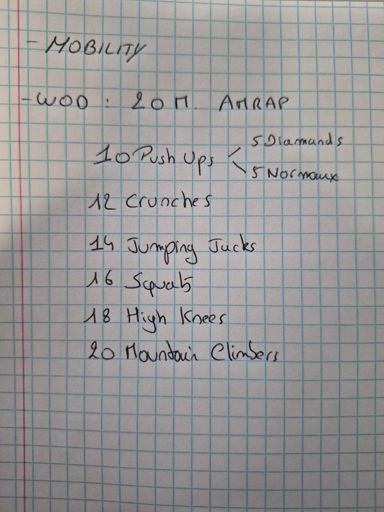 - MOBILITY
- WOD : 20 M. AMRAP
10 Push Ups
5 Diamands
5 Normaux
12 Crunches
14 Jumping Jacks
16 Squats
18 High Knees
20 Mountain Climbers